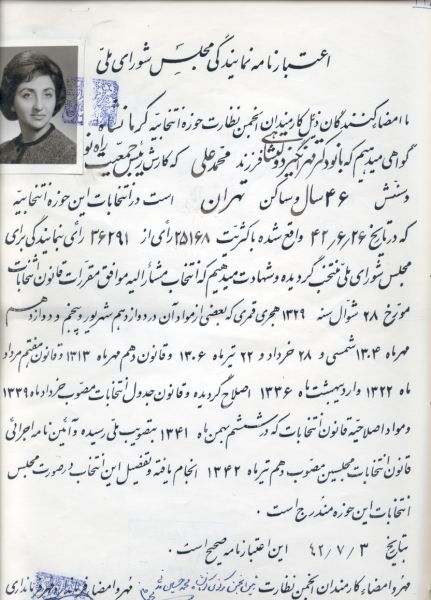 اعتبارنامه نمایندگی مجلس شورای ملی
ما امضاء کنندگان ذیل کارمندان انجمن نظارت حوزه انتخابیه کرمانشاه
گواهی میدهیم که بانو دکتر مهرانگیز دولتشاهی فرزند محمدعلی که کارش رئیس جمعیت راه نو
وسنش ۴۶ سال و ساکن تهران است در انتخابات این حوزه انتخابیه
که در تاریخ ۴۲/۶/۲۶ واقع شده با کثریت ۲۵۱۶۸ رأی از ۳۶۲۹۱ رأی نمایندگی برای
مجلس شورای ملی منتخب گردیده و شهادت میدهیم که انتخاب مشارالیه موافق مقررات قانون انتخابات
مورخ ۲۸ شوال سنه ۱۳۲۹ هجری قمری که بعضی از مواد آن در دوازدهم شهریور و پنجم و دوازدهم
مهرماه ۱۳۰۴ شمسی و ۲۸ خرداد و ۲۲ تیرماه ۱۳۰۶ وقانون دهم مهرماه ۱۳۱۳ وقانون هفتم مرداد
ماه ۱۳۲۲ واردیبهشت ماه ۱۳۳۶ اصلاح گردیده وقانون جدول انتخابات مصوب خرداد ماه ۱۳۳۹
ومواد اصلاحیه قانون انتخابات که در ششم بهمن ماه ۱۳۴۱ بتصویب ملی رسیده وآئین نامه اجرائی
قانون انتخابات مجلسین مصوب دهم تیرماه ۱۳۴۲ انجام یافته وتفصیل این انتخاب در صورت مجلس
انتخابات این حوزه مندرج است .
بتاریخ ۴۲/۷/۳ این اعتبارنامه صحیح است .
مهر وامضاء کارمندان انجمن نظارت مهر وامضاء فرماندار